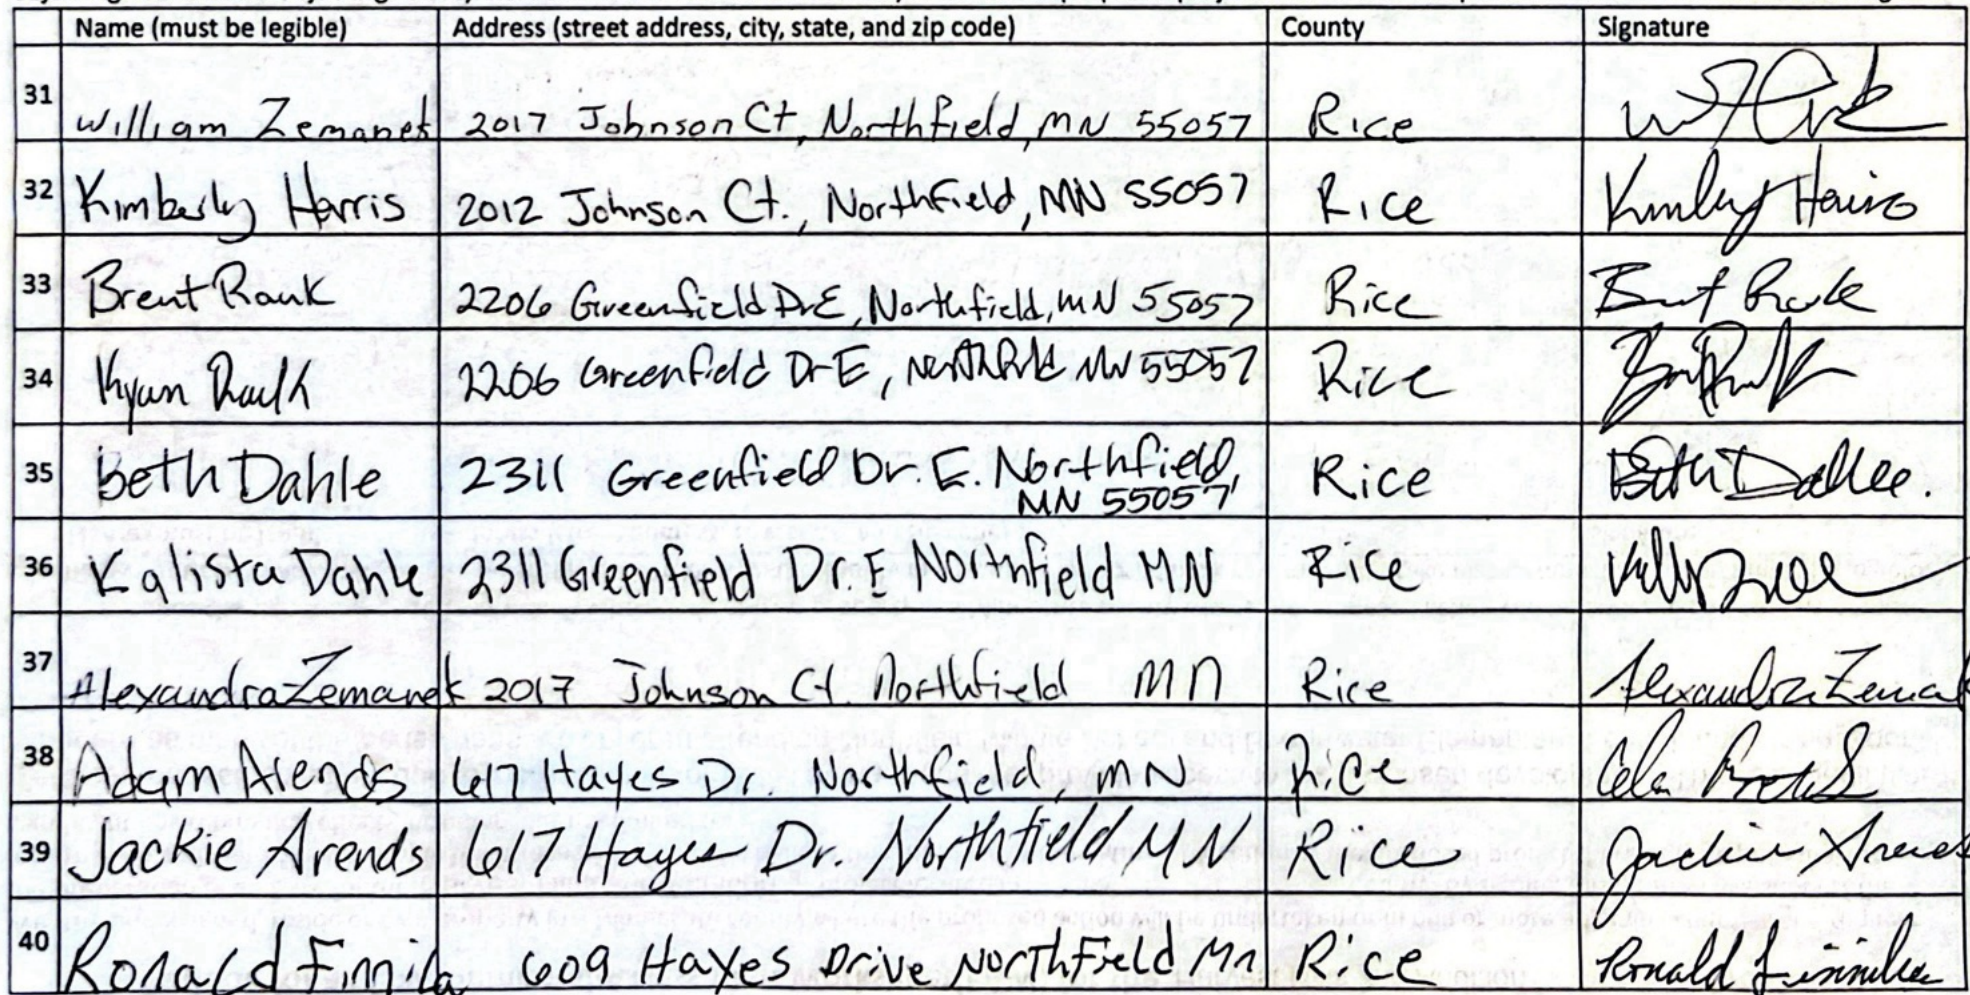 Name (must be legible) Address (street address, city, state, and zip code) County Signature
31 William Zemanek 2017 Johnson Ct, Northfield, MN 55057 Rice
32 Kimberly Harris 2012 Johnson Ct., Northfield, MN 55057 Rice Kimberly Harris
33 Brent Rauk 2206 Greenfield Dr E, Northfield, MN 55057 Rice Brent Rauk
34 2206 Greenfield Dr E, Northfield MN 55057 Rice
35 Beth Dahle 2311 Greenfield Dr. E. Northfield, Rice Beth Dahle.
MN 55057
36 Dahle 2311 Greenfield Dr. E Northfield MN Rice
37 Alexandra Zemanek 2017 Johnson Ct. Northfield MN Rice Alexandra Zemanek
38 Adam Arends 617 Hayes Dr. Northfield, MN Rice
39 Jackie Arends 617 Hayes Dr Northfield MN Rice Jackie Arends
40 Ronald 609 Hayes Drive Northfield Mn Rice Ronald